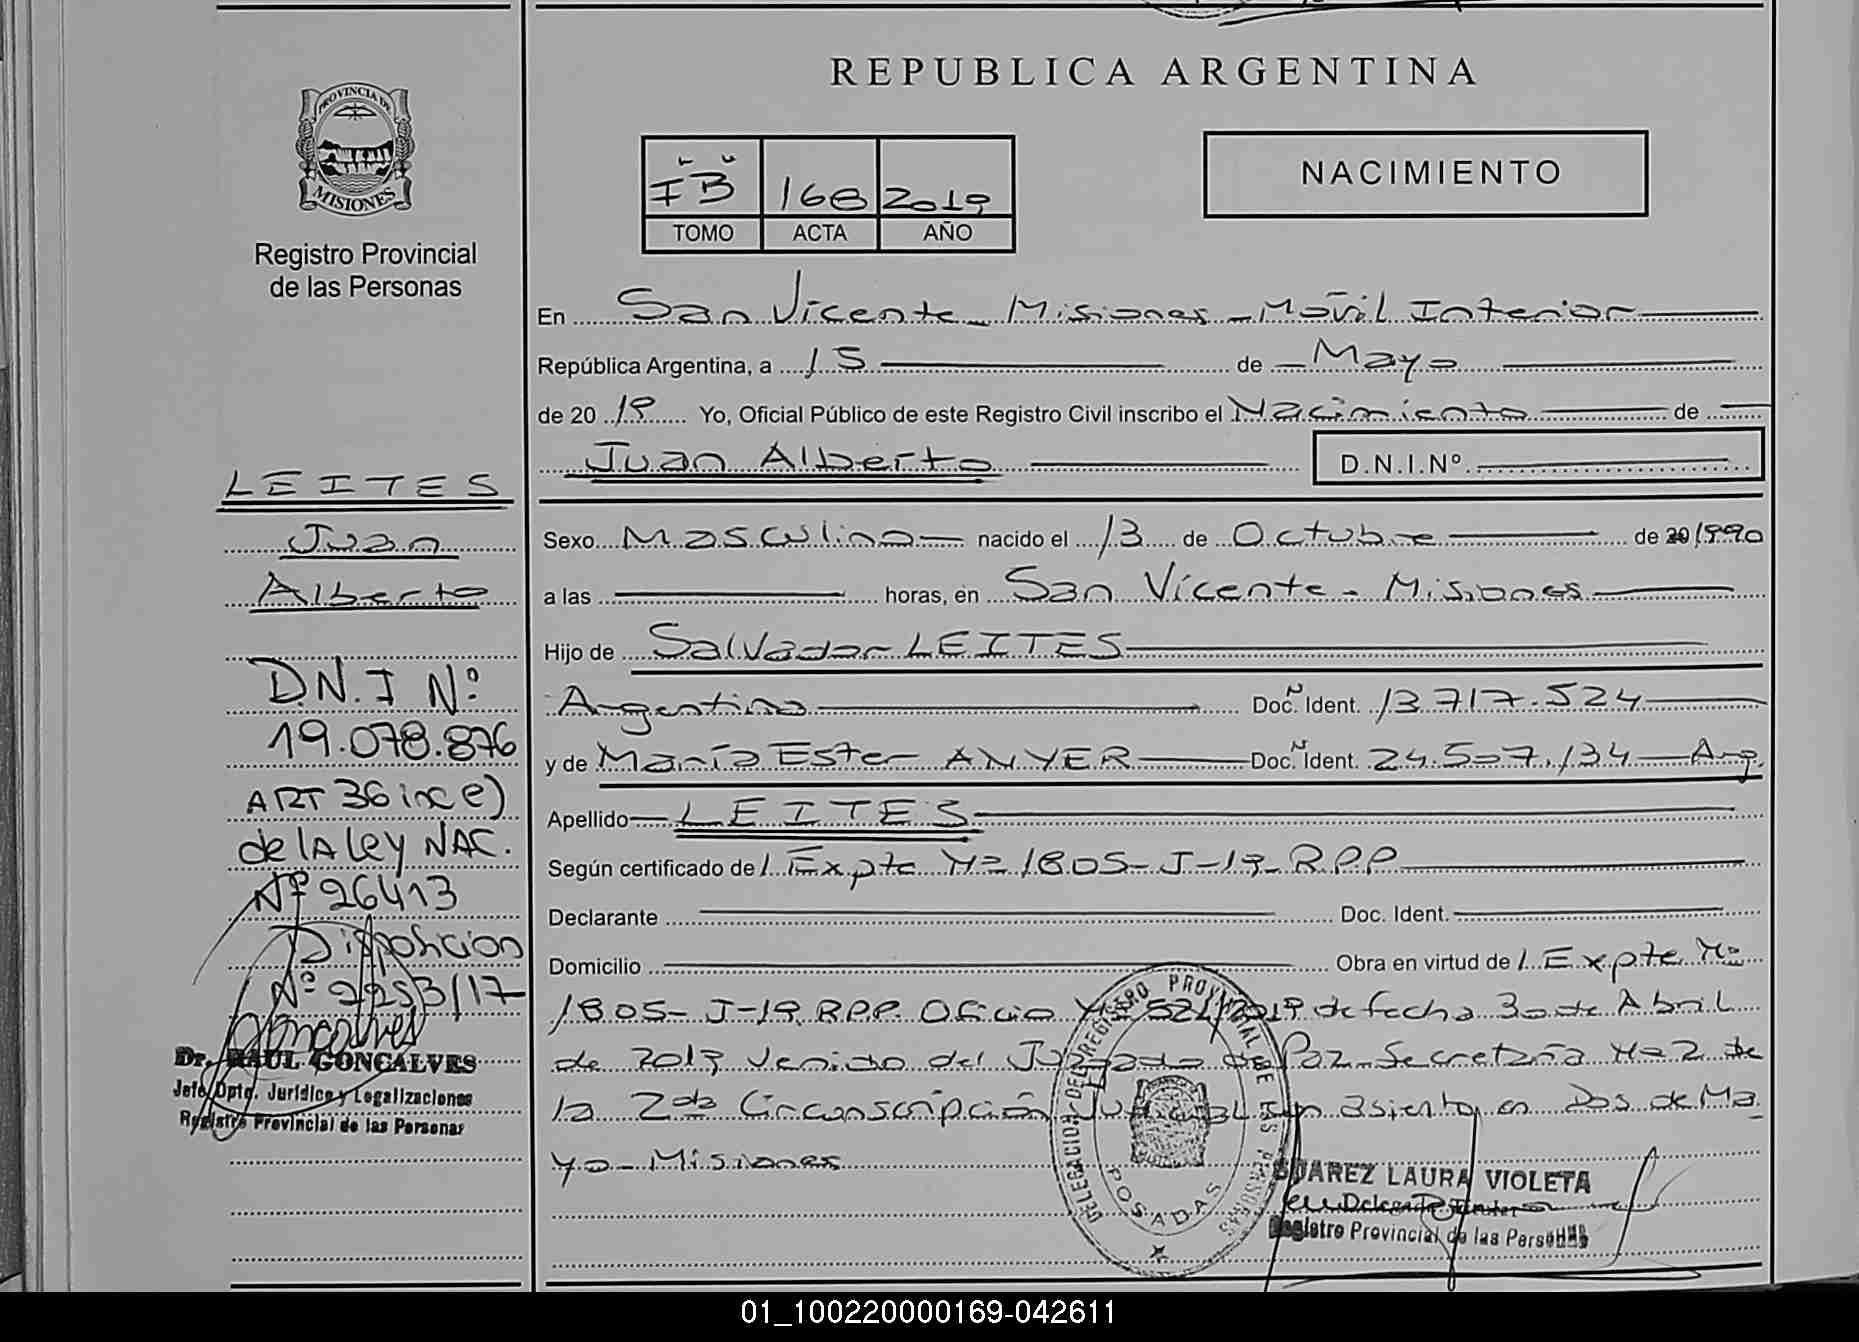 REPUBLICA ARGENTINA
PROVINCIA DE
MISIONES
Registro Provincial
de las Personas
168 2019
TOMO ACTA AÑO
NACIMIENTO
En San Vicente - Misiones - Móvil Interior
República Argentina, a 15 de Mayo
de 20 19 Yo, Oficial Público de este Registro Civil inscribo el Nacimiento de
Juan Alberto D.N.I.Nº
Sexo Masculino nacido el 13 de Octubre de 1990
a las horas, en San Vicente - Misiones
Hijo de Salvador LEITES
Argentino Doc. Ident. 13.717.524
y de María Ester ANYER Doc. Ident. 24.507.134 - Arg.
Apellido LEITES
Según certificado de / Expte Nº 1805-J-19- RPP
Declarante Doc. Ident.
Domicilio Obra en virtud de / Expte Nº
1805-J-19 RPP. Oficio Nº 524/2019 de fecha 30 de Abril
de 2019 venido del Juzgado de Paz Secretaría Nº 2 de
la 2da Circunscripción Judicial con asiento en Dos de Ma
yo - Misiones
LEITES
Juan
Alberto
D.N.I Nº
19.078.876
ART 36 inc e)
de lA ley NAC.
Nº 26413
Disposicion
Nº 2253/17
Goncalves
Dr. RAUL GONCALVES
Jefe Dpto. Jurídico y Legalizaciones
Registro Provincial de las Personas
DELEGACION DEL REGISTRO PROVINCIAL DE LAS PERSONAS
POSADAS
SUAREZ LAURA VIOLETA
Registro Provincial de las Personas
01_100220000169-042611